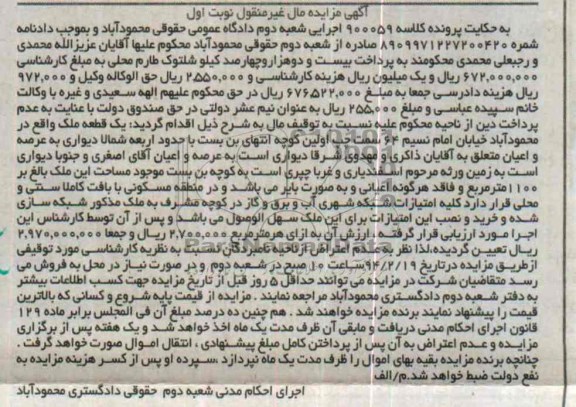 آگهی مزایده مال غیرمنقول نوبت اول
به حکایت پرونده کلاسه ۹۰۰۰۵۹ اجرایی شعبه دوم دادگاه عمومی حقوقی محمودآباد و بموجب دادنامه
شمره ۸۹۰۹۹۷۱۲۲۷۲۰۰۴۲۰ صادره از شعبه دوم حقوقی محمودآباد محکوم علیها آقایان عزیزالله محمدی
و رجبعلی محمدی محکومند به پرداخت بیست و دوهزاروچهارصد کیلو شلتوک طارم محلی به مبلغ کارشناسی
۶۷۲,۰۰۰,۰۰۰ ریال و یک میلیون ریال هزینه کارشناسی و ۲,۵۵۰,۰۰۰ ریال حق الوکاله وکیل و ۹۷۲,۰۰۰
ریال هزینه دادرسی جمعا به مبلغ ۶۷۶۵۲۲,۰۰۰ ریال در حق محکوم علیهم الهه سعیدی و غیره با وکالت
خانم سپیده عباسی و مبلغ ۲۵۵,۰۰۰ ریال به عنوان نیم عشر دولتی در حق صندوق دولت با عنایت به عدم
پرداخت دین از ناحیه محکوم علیه نسبت به توقیف مال به شرح ذیل اقدام گردید: یک قطعه ملک واقع در
محمودآباد خیابان امام نسیم ۶۴ سمت چپ اولین کوچه انتهای بن بست با حدود اربعه شمالا دیواری به عرصه
و اعیان متعلق به آقایان ذاکری و مهدوی شرقا دیواری است به عرصه و اعیان آقای اصغری و جنوبا دیواری
است به زمین ورثه مرحوم اسفندیاری و غربا چپری است به کوچه بن بست موجود مساحت این ملک بالغ بر
۱۱۰۰مترمربع و فاقد هرگونه اعیانی و به صورت بایر می باشد و در منطقه مسکونی با بافت کاملا سنتی و
محلی قرار دارد کلیه امتیازات شبکه شهری آب و برق و گاز در کوچه مشرف به ملک مذکور شبکه سازی
شده و خرید و نصب این امتیازات برای این ملک سهل الوصول می باشد و پس از آن توسط کارشناس این
اجرا مورد ارزیابی قرار گرفته و ارزش آن به ازای هرمترمربع ۲,۷۰۰,۰۰۰ ریال و جمعا ۲,۹۷۰,۰۰۰,۰۰۰
ریال تعیین گردیده،لذا نظر به عدم اعتراض از ناحیه نامبردگان نسبت به نظریه کارشناسی مورد توقیفی
ازطریق مزایده درتاریخ ۹۴/۲/۱۹ساعت ۱۰ صبح در شعبه دوم و در صورت نیاز در محل به فروش می
رسد متقاضیان شرکت در مزایده می توانند حداقل ۵ روز قبل از تاریخ مزایده جهت کسب اطلاعات بیشتر
به دفتر شعبه دوم دادگستری محمودآباد مراجعه نمایند . مزایده از قیمت پایه شروع و کسانی که بالاترین
قیمت را پیشنهاد نمایند برنده مزایده خواهند شد . هم چنین ده درصد مبلغ آن فی المجلس برابر ماده ۱۲۹
قانون اجرای احکام مدنی دریافت و مابقی آن ظرف مدت یک ماه اخذ خواهد شد و یک هفته پس از برگزاری
مزایده و عدم اعتراض به آن پس از پرداختن کامل مبلغ پیشنهادی ، انتقال اموال صورت خواهد گرفت .
چنانچه برنده مزایده بقیه بهای اموال را ظرف مدت یک ماه نپردازد ،سپرده او پس از کسر هزینه مزایده به
نفع دولت ضبط خواهد شد.م/الف
اجرای احکام مدنی شعبه دوم حقوقی دادگستری محمودآباد